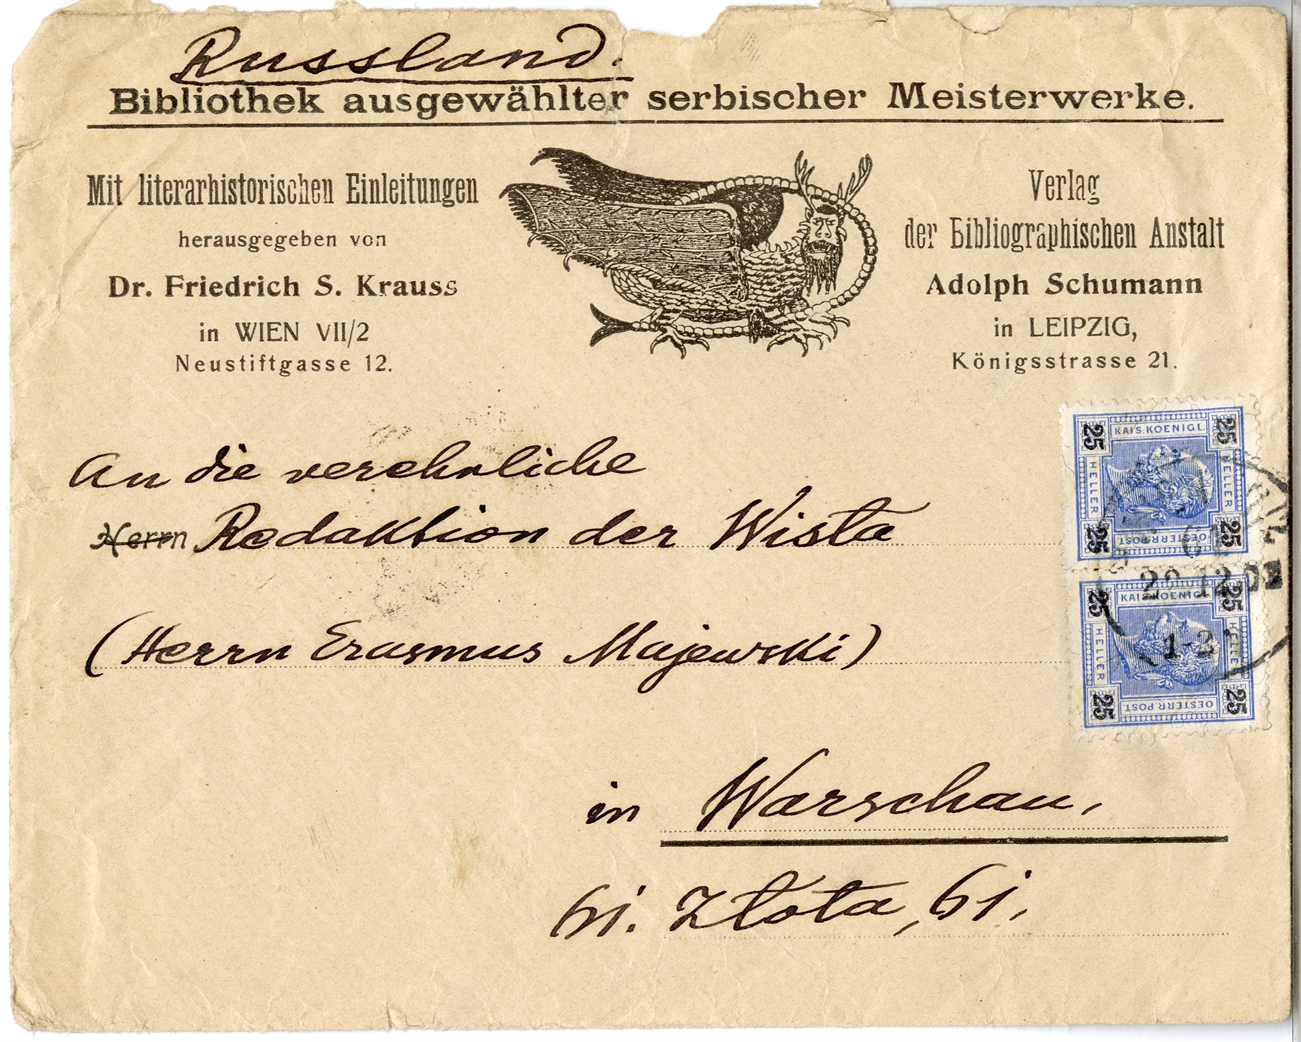 Russland.
Bibliothek ausgewählter serbischer Meisterwerke.
Mit literarhistorischen Einleitungen
herausgegeben von
Dr. Friedrich S. Krauss
in WIEN VII/2
Neustiftgasse 12.
Verlag
der Bibliographischen Anstalt
Adolph Schumann
in LEIPZIG,
Königsstrasse 21.
An die verehrliche
Herrn Redaktion der Wisła
(Herrn Erasmus Majewski)
in Warschau,
Złota, 61.
25 KAIS. KOENIGL. 25
HELLER HELLER
25 OESTERR. POST 25
25 KAIS. KOENIGL. 25
HELLER HELLER
25 OESTERR. POST 25